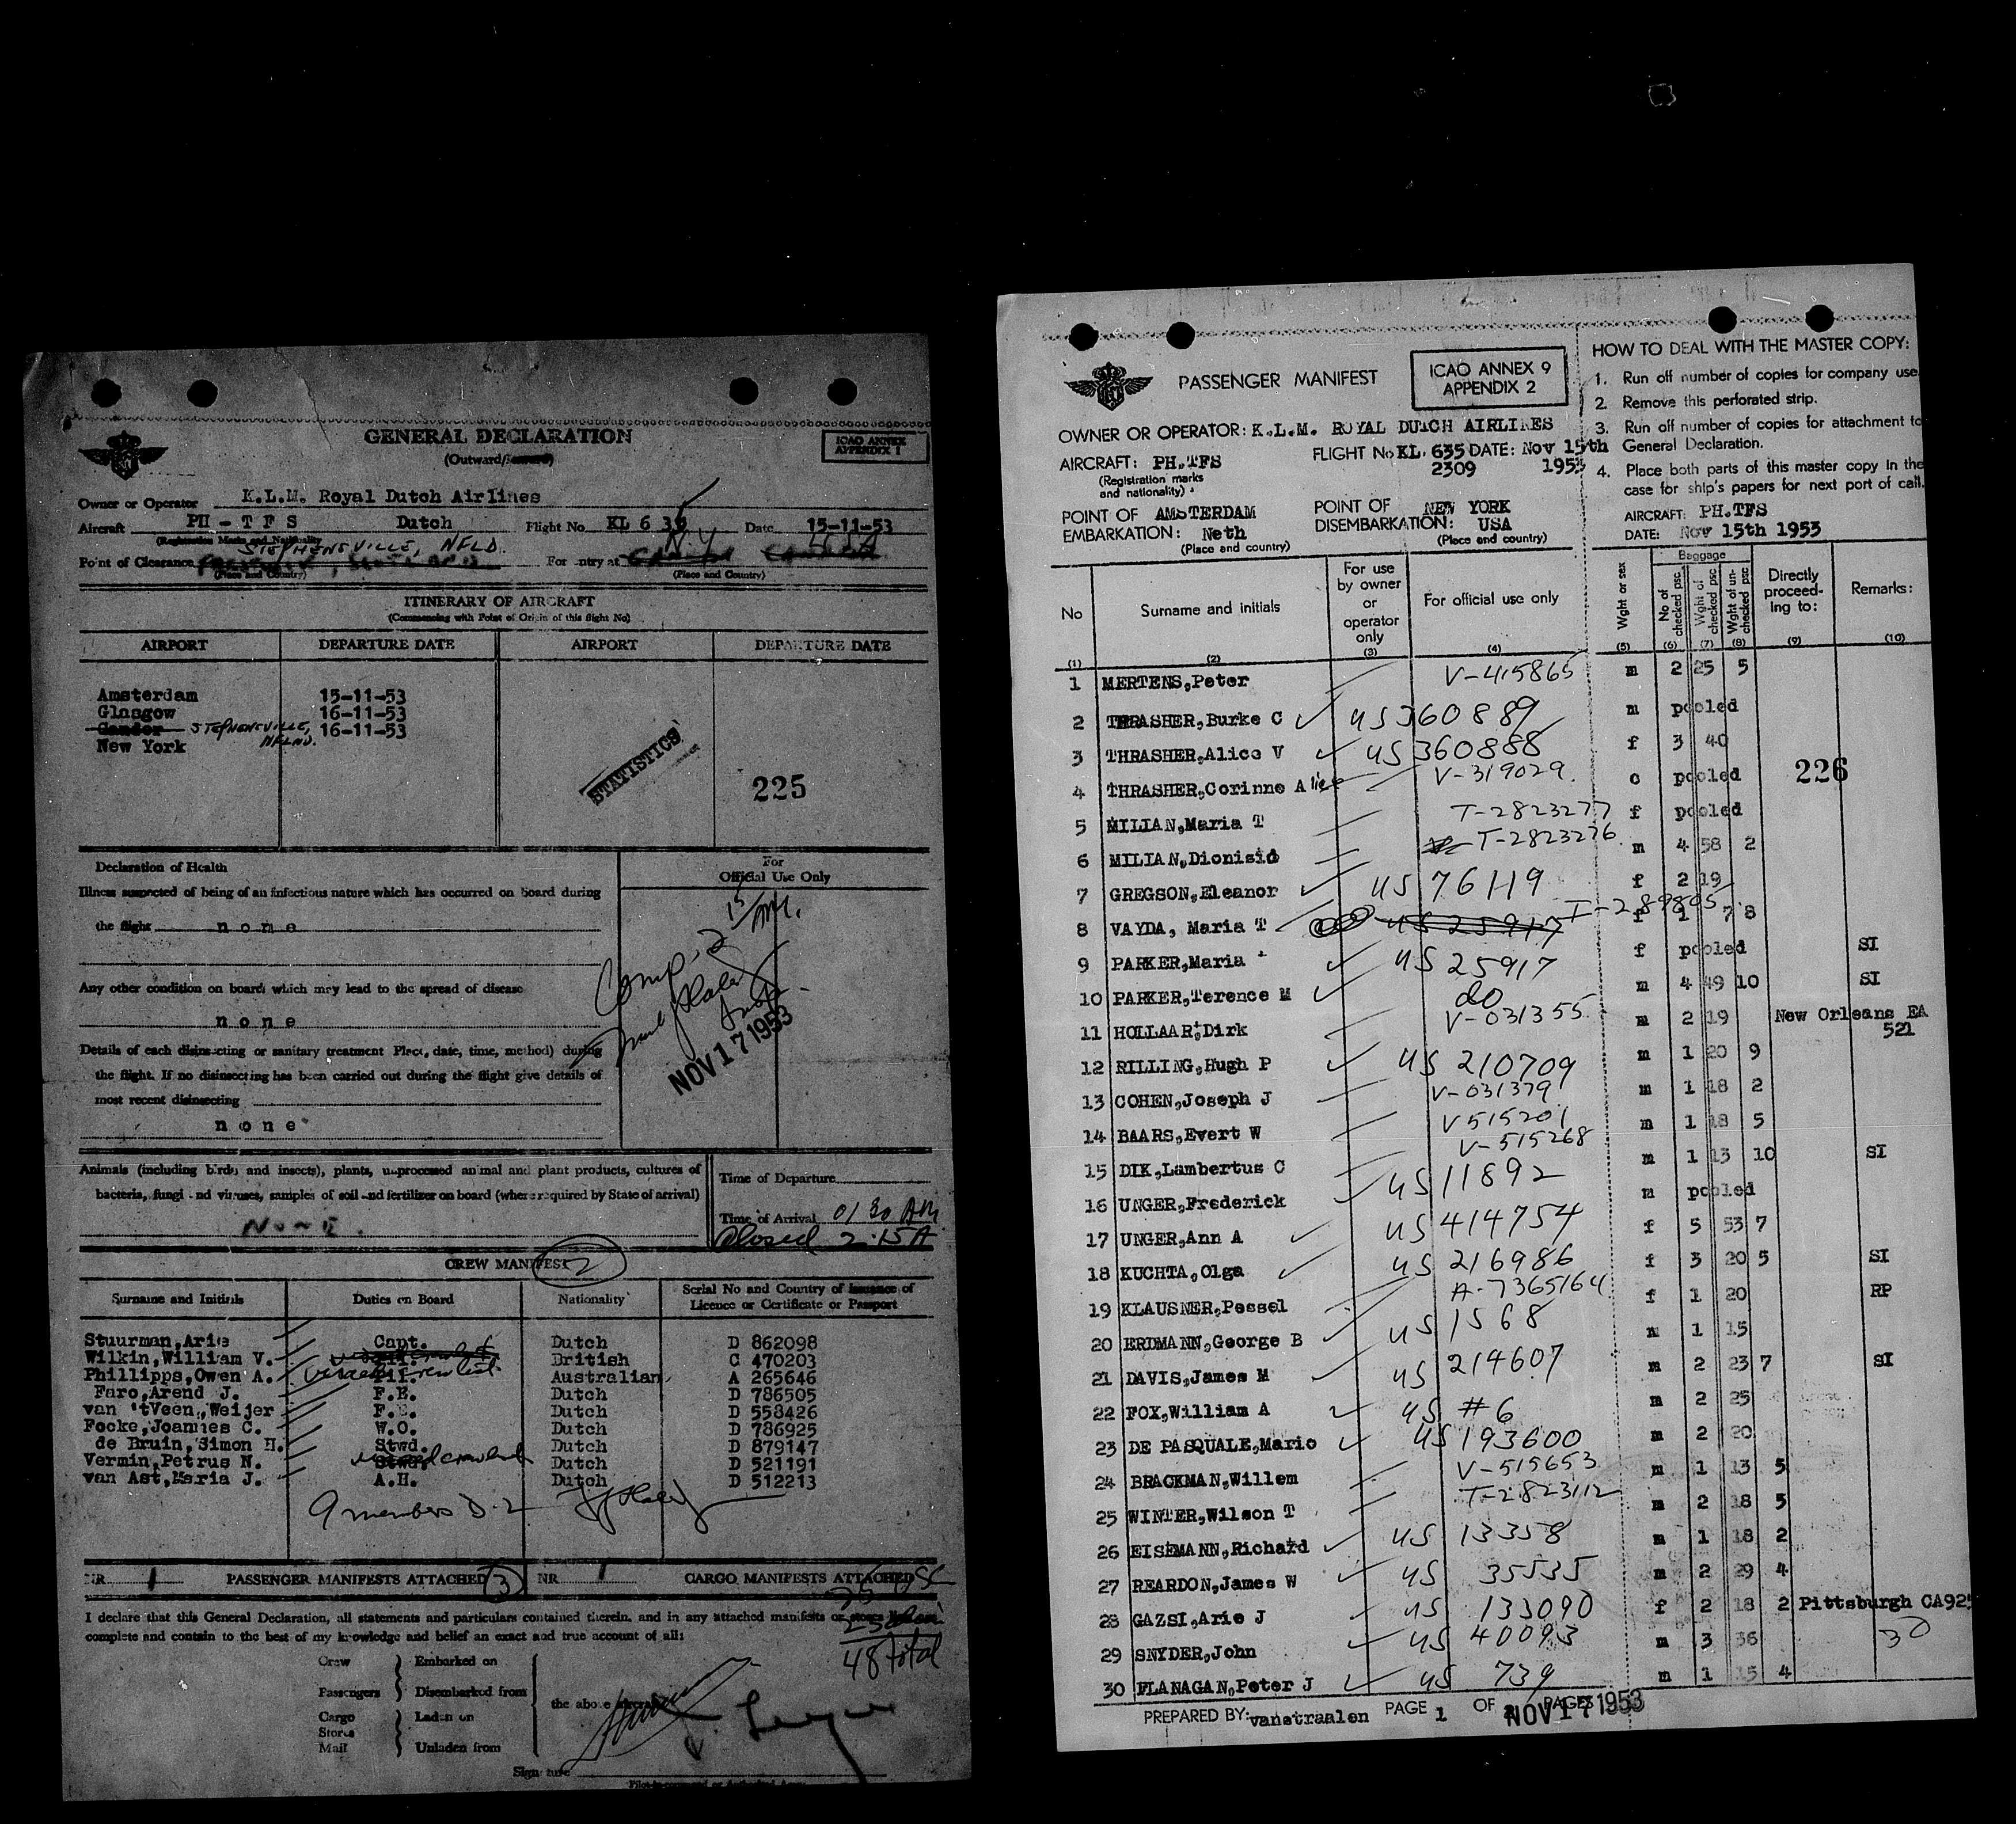 GENERAL DECLARATION
(Outward/Inward)
ICAO ANNEX
APPENDIX 1
Owner or Operator K.L.M. Royal Dutch Airlines
Aircraft PH - T F S Dutch Flight No KL 6 35 Date 15-11-53
(Registration Marks and Nationality
STEPHENEVILLE, NFLD. N.Y. USA
Point of Clearance For entry at
(Place and Country) (Place and Country)
ITINERARY OF AIRCRAFT
(Commencing with Point of Origin of this flight No)
AIRPORT DEPARTURE DATE AIRPORT DEPARTURE DATE
Amsterdam 15-11-53
Glasgow 16-11-53
Gander STEPHENEVILLE, 16-11-53
NFLND.
New York
STATISTICS
225
Declaration of Health
For
Official Use Only
Illness suspected of being of an infectious nature which has occurred on board during
the flight none
Any other condition on board which may lead to the spread of disease
none
Details of each disinsecting or sanitary treatment Place, date, time, method) during
the flight. If no disinsecting has been carried out during the flight give details of
most recent disinsecting
none
Comp. 2
NOV 17 1953
Animals (including birds and insects), plants, unprocessed animal and plant products, cultures of
bacteria, fungi and viruses, samples of soil and fertilizer on board (where required by State of arrival)
None.
Time of Departure
Time of Arrival 01 30 AM
Closed 2:15 A
CREW MANIFEST 2
Surname and Initials Duties on Board Nationality Serial No and Country of Issuance of
Licence or Certificate or Passport
Stuurman,Arie Capt. Dutch D 862098
Wilkin,William V. British C 470203
Phillipps,Owen A. Australian A 265646
Faro,Arend J. F.E. Dutch D 786505
van 'tVeen,Weijer F.E. Dutch D 558426
Focke,Joannes C. W.O. Dutch D 786925
de Bruin,Simon H. Stwd. Dutch D 879147
Vermin,Petrus N. Dutch D 521191
van Ast,Maria J. A.H. Dutch D 512213
9 members D-2
NR 1 PASSENGER MANIFESTS ATTACHED 3 NR 1 CARGO MANIFESTS ATTACHED
I declare that this General Declaration, all statements and particulars contained therein, and in any attached manifests or stores
complete and contain to the best of my knowledge and belief an exact and true account of all:
48 total
Crew Embarked on
Passengers Disembarked from
the above aircraft
Cargo Laden on
Stores
Mail Unladen from
Signature
PASSENGER MANIFEST
ICAO ANNEX 9
APPENDIX 2
OWNER OR OPERATOR: K.L.M. ROYAL DUTCH AIRLINES
AIRCRAFT: PH.TFS FLIGHT No KL. 635 DATE: Nov 15th
2309 1953
(Registration marks
and nationality)
POINT OF AMSTERDAM POINT OF NEW YORK
EMBARKATION: Neth DISEMBARKATION: USA
(Place and country) (Place and country)
HOW TO DEAL WITH THE MASTER COPY:
1. Run off number of copies for company use.
2. Remove this perforated strip.
3. Run off number of copies for attachment to
General Declaration.
4. Place both parts of this master copy in the
case for ship's papers for next port of call.
AIRCRAFT: PH.TFS
DATE: Nov 15th 1953
No Surname and initials For use by owner or operator only For official use only Wght or sex Baggage No of checked psc Wght of checked psc Wght of un-checked psc Directly proceed-ing to: Remarks:
(1) (2) (3) (4) (5) (6) (7) (8) (9) (10)
1 MERTENS,Peter V-415865 m 2 25 5
2 THRASHER,Burke C US 360889 m pooled
3 THRASHER,Alice V US 360888 f 3 40
4 THRASHER,Corinne Alice V-319029 c pooled
226
5 MILIAN,Maria T T-2823277 f pooled
6 MILIAN,Dionisio T-2823276 m 4 58 2
7 GREGSON,Eleanor US 76119 f 2 19
8 VAYDA, Maria T US 25917 f 1 7 8
9 PARKER,Maria US 25917 f pooled SI
10 PARKER,Terence M do m 4 49 10 SI
11 HOLLAAR,Dirk V-031355 m 2 19 New Orleans EA
521
12 RILLING,Hugh P US 210709 m 1 20 9
13 COHEN,Joseph J V-031379 m 1 18 2
14 BAARS,Evert W V515201 m 1 18 5
15 DIK,Lambertus C V-515268 m 1 13 10 SI
16 UNGER,Frederick US 11892 m pooled
17 UNGER,Ann A US 414754 f 5 53 7
18 KUCHTA,Olga US 216986 f 3 20 5 SI
19 KLAUSNER,Pessel A-7365164 f 1 20 RP
20 ERDMANN,George B US 1568 m 1 15
21 DAVIS,James M US 214607 m 2 23 7 SI
22 FOX,William A US #6 m 2 25
23 DE PASQUALE,Mario US 193600 m 2 20
24 BRACKMAN,Willem V-515653 m 1 13 5
25 WINTER,Wilson T T-2823112 m 2 18 5
26 EISEMANN,Richard US 13358 m 1 18 2
27 REARDON,James W US 35535 m 2 29 4
28 GAZSI,Arie J US 133090 f 2 18 2 Pittsburgh CA925
29 SNYDER,John US 40093 m 3 36 30
30 FLANAGAN,Peter J US 739 m 1 15 4
PREPARED BY: vanstraalen PAGE 1 OF PAGES
NOV 17 1953